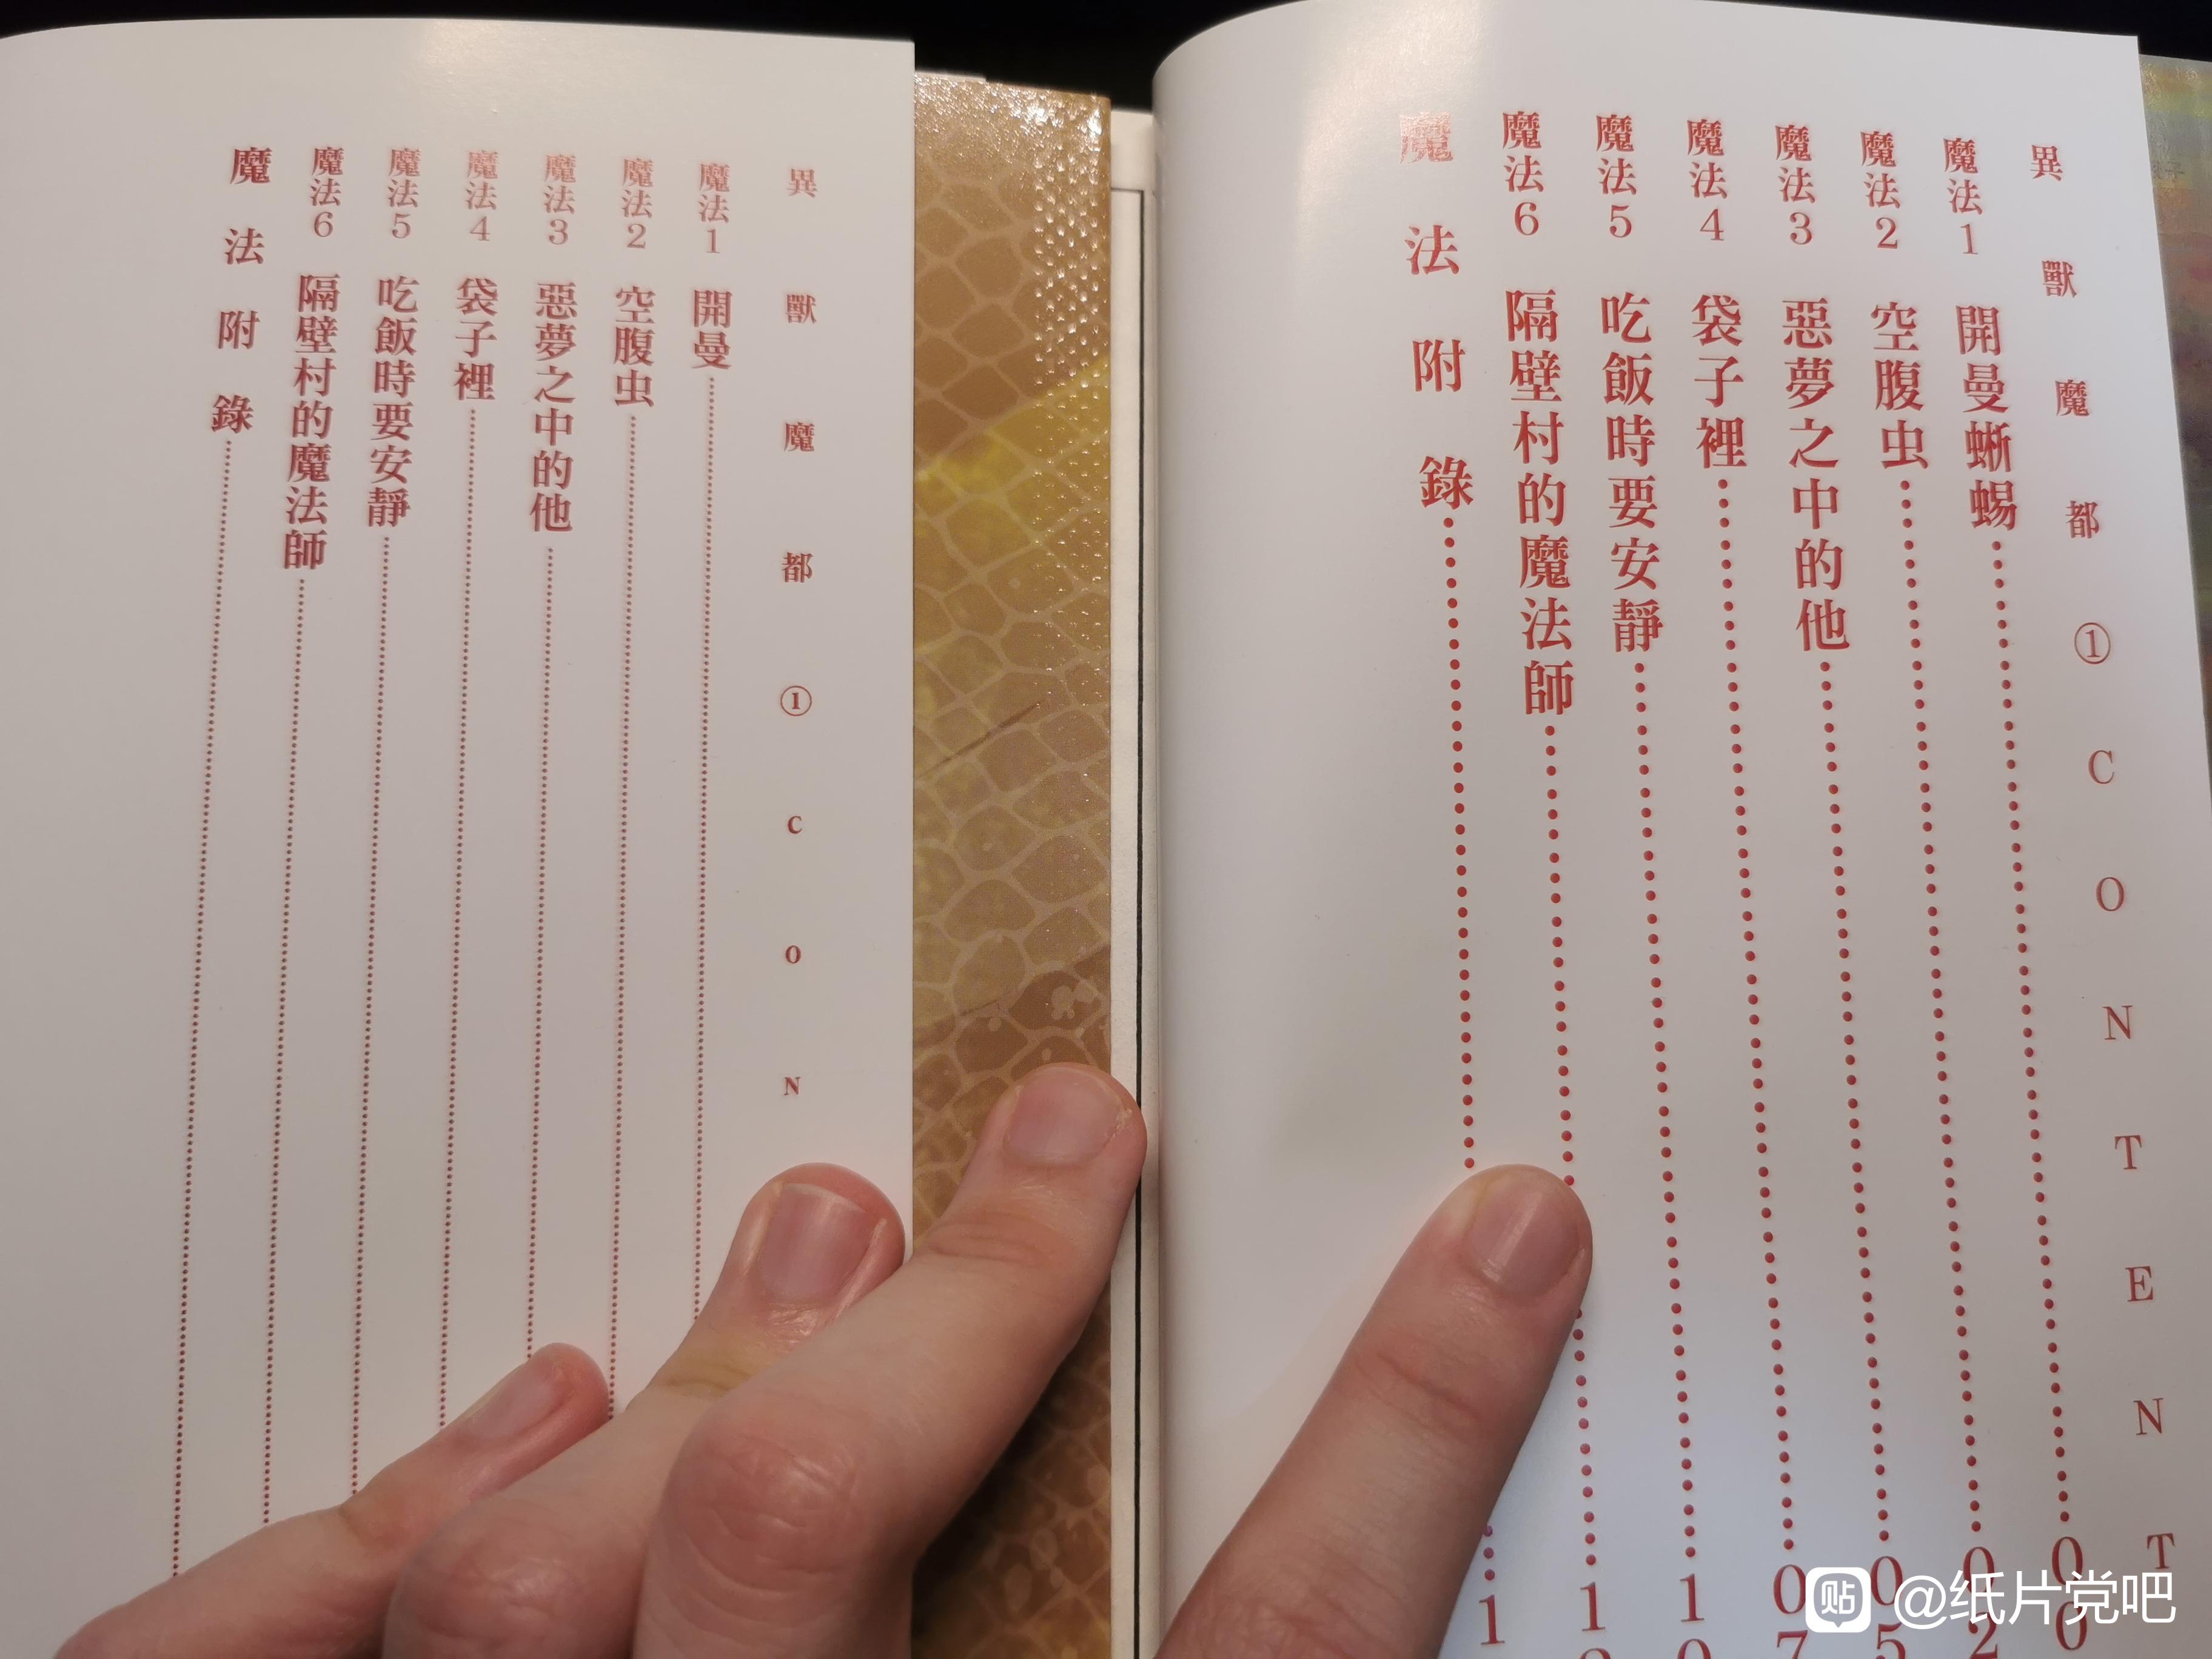 異獸魔都①CON
魔法1 開曼
魔法2 空腹虫
魔法3 惡夢之中的他
魔法4 袋子裡
魔法5 吃飯時要安靜
魔法6 隔壁村的魔法師
魔法附錄
異獸魔都①CONTENT
魔法1 開曼蜥蜴 00
魔法2 空腹虫 02
魔法3 惡夢之中的他 05
魔法4 袋子裡 07
魔法5 吃飯時要安靜 1
魔法6 隔壁村的魔法師 1
魔法附錄 1
貼 @纸片党吧